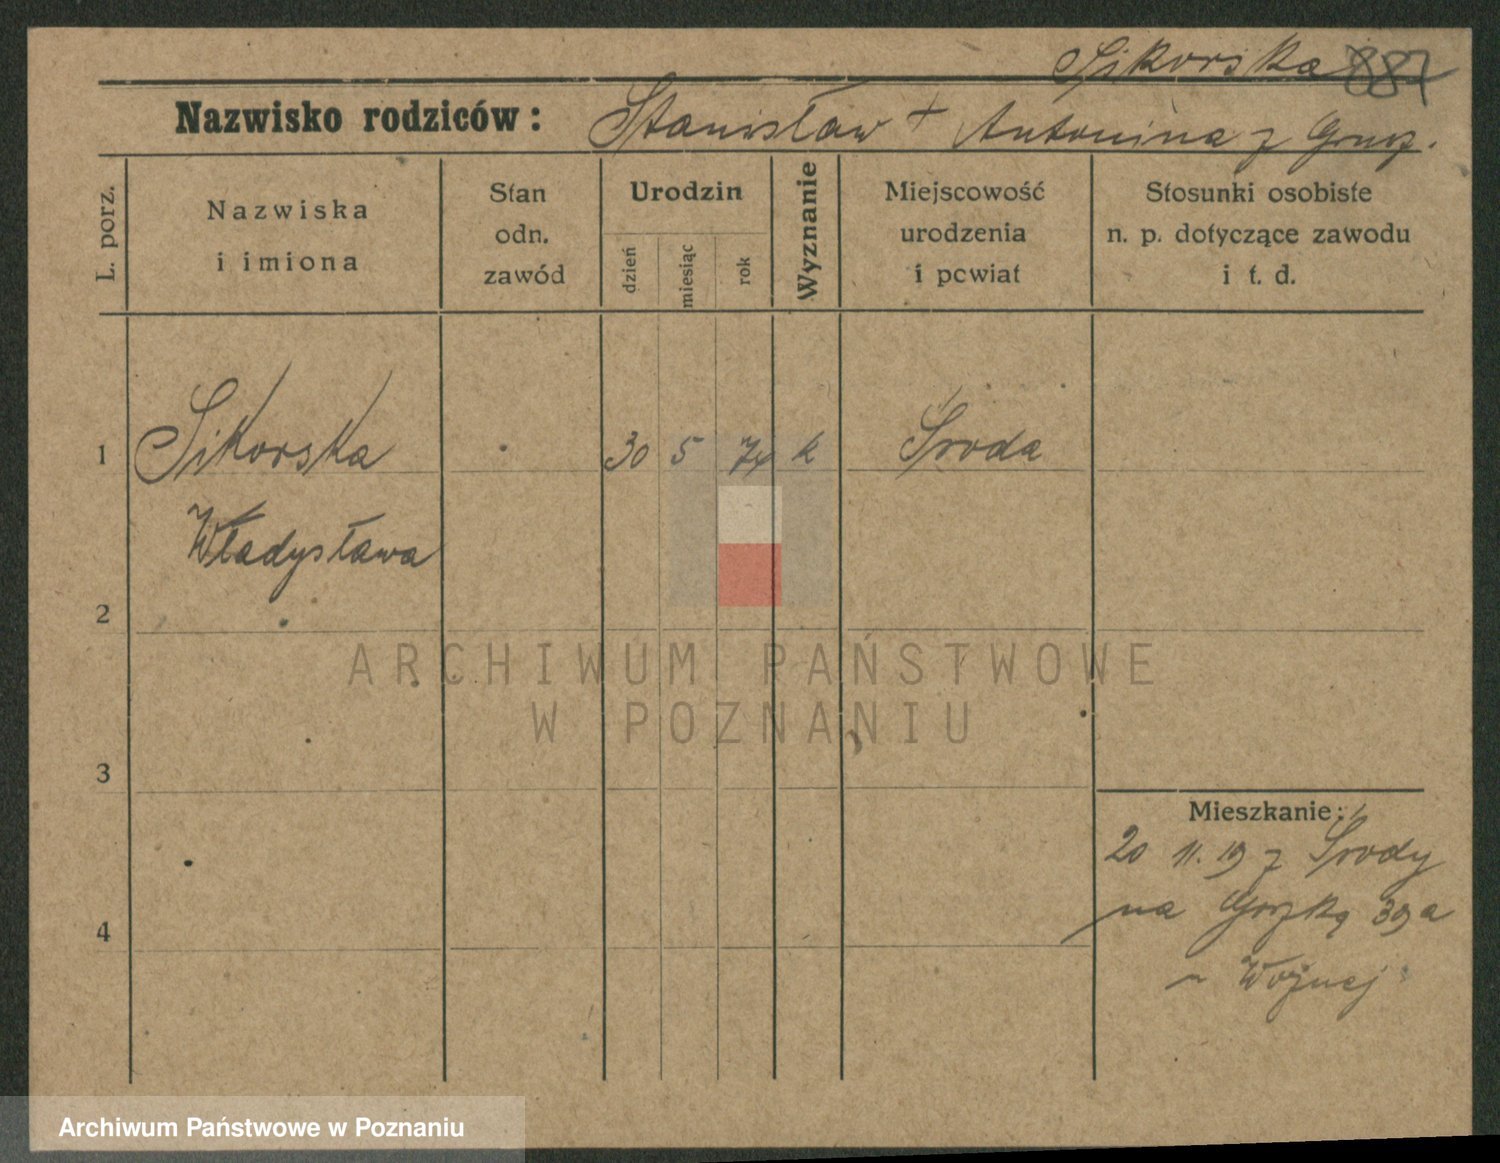 Sikorska 887
Nazwisko rodziców: Stanisław + Antonina z
L. porz.
Nazwiska
i imiona
Stan
odn.
zawód
Urodzin
dzień
miesiąc
rok
Wyznanie
Miejscowość
urodzenia
i pcwiat
Stosunki osobiste
n. p. dotyczące zawodu
i t. d.
1 Sikorska 30 5 74 k Środa
Władysława
2
ARCHIWUM PAŃSTWOWE
W POZNANIU
3
Mieszkanie:
20 11. 19 z Środy
na 39a
Woźnej
4
Archiwum Państwowe w Poznaniu